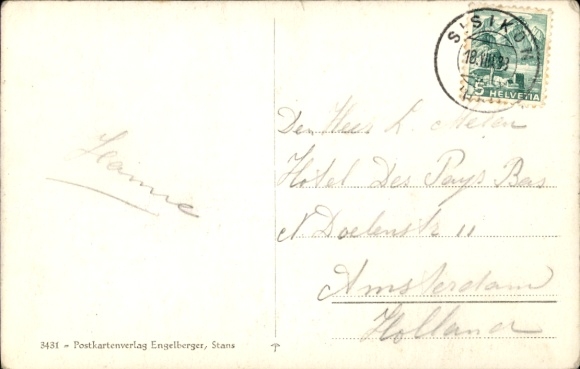 SISIKON
18.VIII.37
5 HELVETIA
Den Heer L. Meten
Hôtel Des Pays Bas
N Doelenstr 11
Amsterdam
Holland
Jeanne
3431 - Postkartenverlag Engelberger, Stans